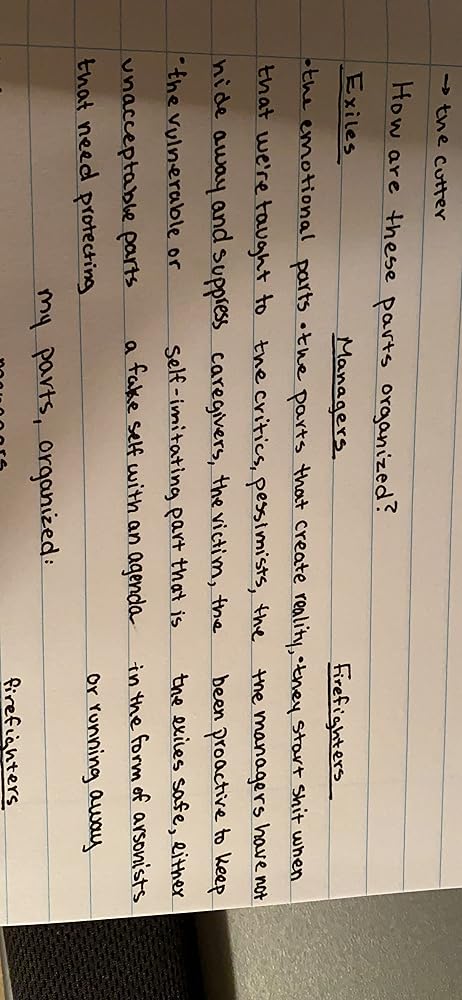 → the cutter
How are these parts organized?
Exiles
• the emotional parts
that we're taught to
hide away and suppress
• the vulnerable or
unacceptable parts
that need protecting
Managers
• the parts that create reality,
the critics, pessimists, the
caregivers, the victim, the
self-imitating part that is
a fake self with an agenda
Firefighters
• they start shit when
the managers have not
been proactive to keep
the exiles safe, either
in the form of arsonists
or running away
my parts, organized:
firefighters